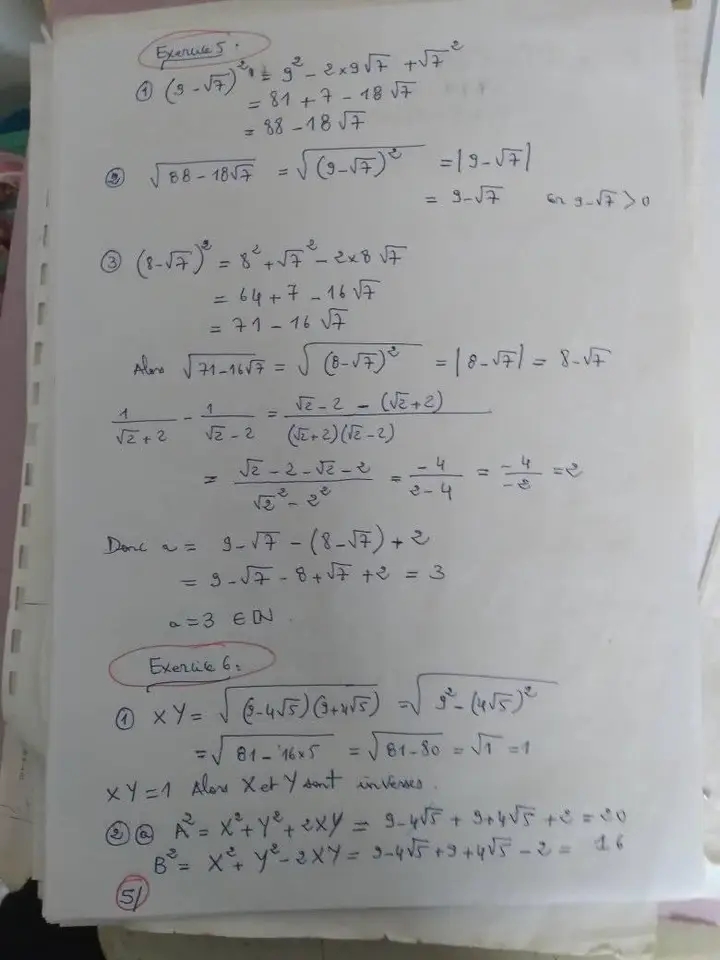 Exercice 5 :
① (9-√7)² = 9² - 2×9√7 + √7²
= 81 + 7 - 18√7
= 88 - 18√7
② √(88-18√7) = √((9-√7)²) = |9-√7|
= 9-√7 car 9-√7 > 0
③ (8-√7)² = 8² + √7² - 2×8√7
= 64 + 7 - 16√7
= 71 - 16√7
Alors √(71-16√7) = √((8-√7)²) = |8-√7| = 8-√7
1/(√2+2) - 1/(√2-2) = (√2-2-(√2+2))/((√2+2)(√2-2))
= (√2-2-√2-2)/(√2²-2²) = -4/(2-4) = -4/-2 = 2
Donc a = 9-√7-(8-√7)+2
= 9-√7-8+√7+2 = 3
a=3 ∈ ℕ
Exercice 6 :
① XY = √((9-4√5)(9+4√5)) = √(9²-(4√5)²)
= √(81-16×5) = √(81-80) = √1 = 1
XY=1 Alors X et Y sont inverses.
② ⓐ A² = X²+Y²+2XY = 9-4√5+9+4√5+2 = 20
B² = X²+Y²-2XY = 9-4√5+9+4√5-2 = 16
5/